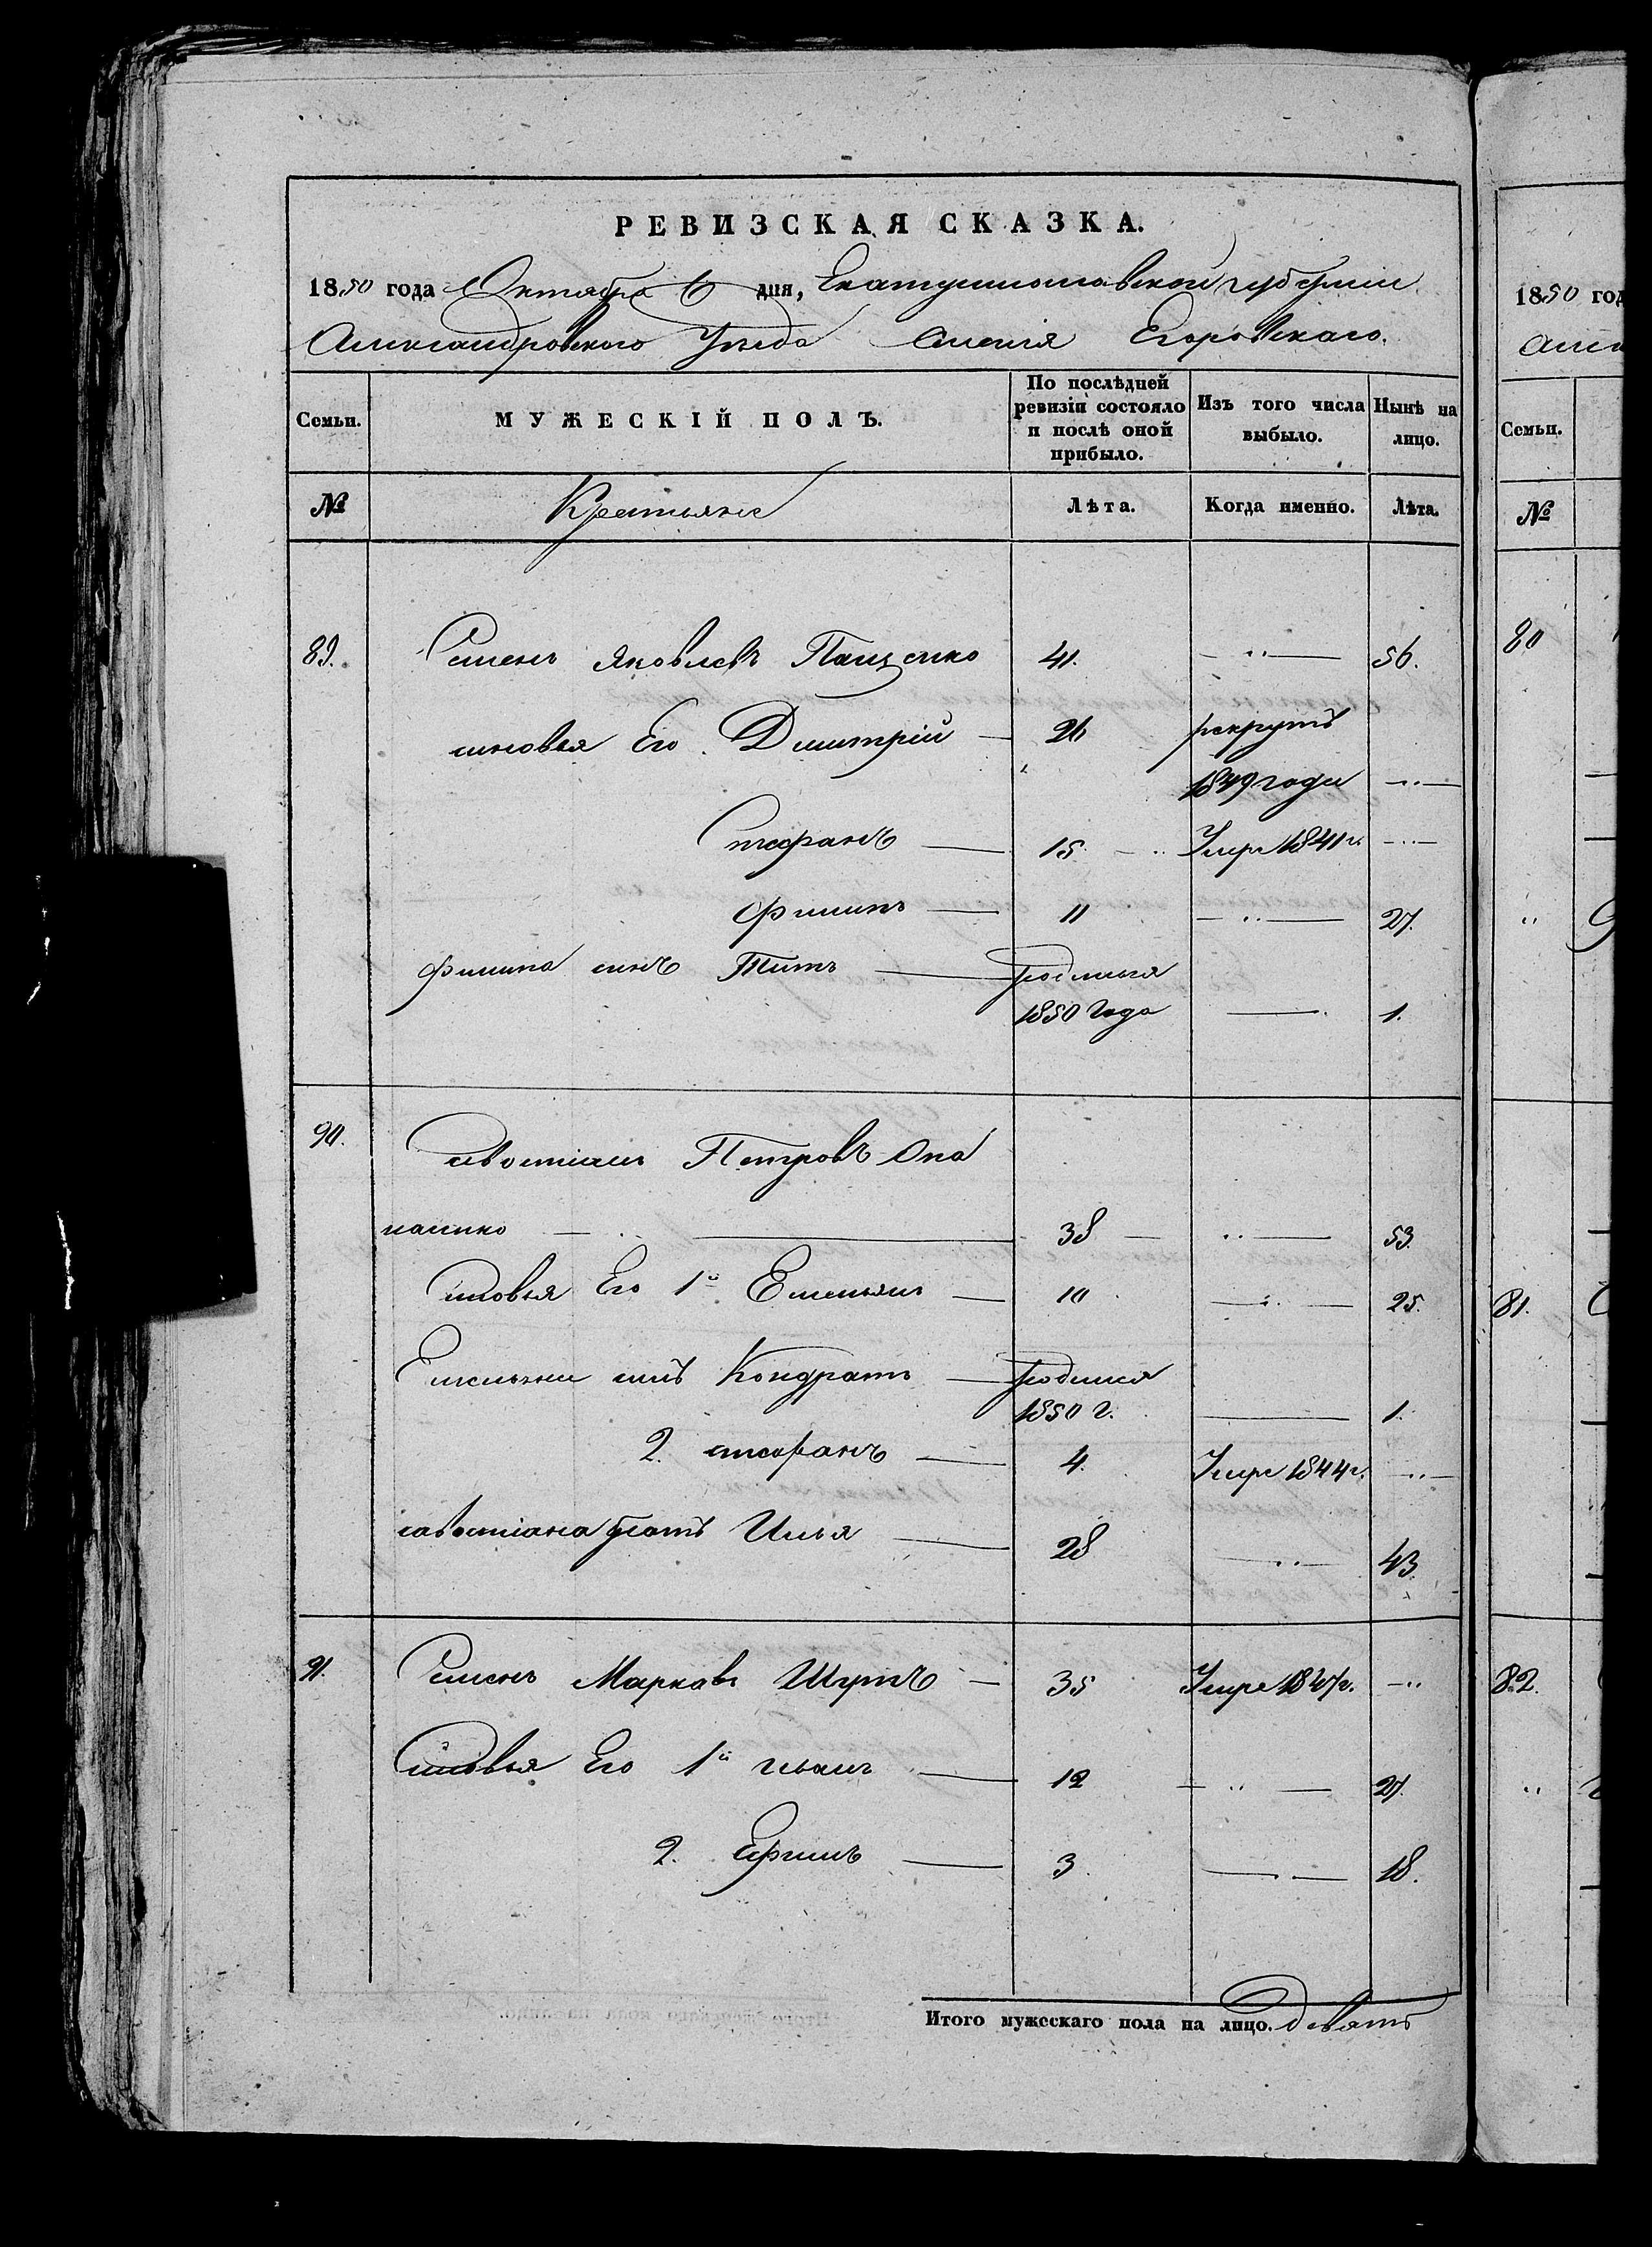 РЕВИЗСКАЯ СКАЗКА.
1850 года Октября 6 дня, Екатеринославской губерніи
Александровскаго Уезда Имения Егоровскаго.
Семьи. МУЖЕСКІЙ ПОЛЪ. По послѣдней ревизіи состояло и послѣ оной прибыло. Изъ того числа выбыло. Нынѣ на лицо.
№ Крестьяне Лѣта. Когда именно. Лѣта.
89. Семенъ Яковлевъ Пащенко 41. — " — 56.
синовья Его Дмитрій — 26 рекрутъ
1849 года — " —
Стефанъ — 15 — " Умре 1841 г. — " —
Филипъ — 11 — " — 27.
Филипа синъ Титъ — родился
1850 Года — 1.
90. Савостіанъ Петровъ Опа
насенко — " — 38 — " — 53.
Синовья Его 1й Емельянъ — 10 — " — 25.
Емельяна синъ Кондратъ — родился
1850 г. — 1.
2. стефанъ — 4. Умре 1844 г. — " —
савостіана братъ Илья — 28 — " — 43.
91. Семенъ Марковъ — 35 Умре 1847 г. — "
Синовья Его 1й иванъ — 12 — " — 27.
2. Ефимъ — 3. — " — 18.
Итого мужескаго пола на лицо. Девять
1850 год
Алек
Семьи.
№
80
"
81.
82.
"